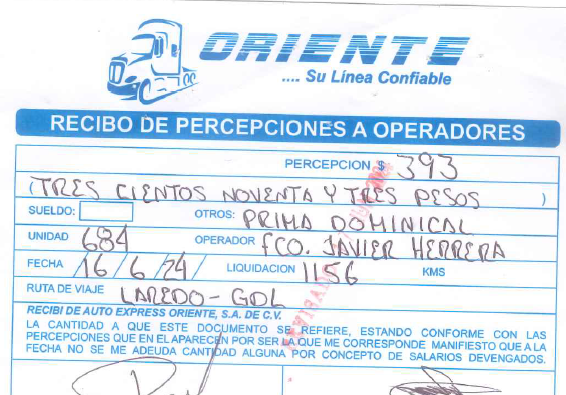 ORIENTE
.... Su Línea Confiable
RECIBO DE PERCEPCIONES A OPERADORES
PERCEPCION $ 393
(TRES CIENTOS NOVENTA Y TRES PESOS)
SUELDO: OTROS: PRIMA DOMINICAL
UNIDAD 684 OPERADOR FCO. JAVIER HERRERA
FECHA 16/6/24/ LIQUIDACION 1156 KMS
RUTA DE VIAJE LAREDO-GDL
RECIBI DE AUTO EXPRESS ORIENTE, S.A. DE C.V.
LA CANTIDAD A QUE ESTE DOCUMENTO SE REFIERE, ESTANDO CONFORME CON LAS
PERCEPCIONES QUE EN EL APARECEN POR SER LA QUE ME CORRESPONDE MANIFIESTO QUE A LA
FECHA NO SE ME ADEUDA CANTIDAD ALGUNA POR CONCEPTO DE SALARIOS DEVENGADOS.